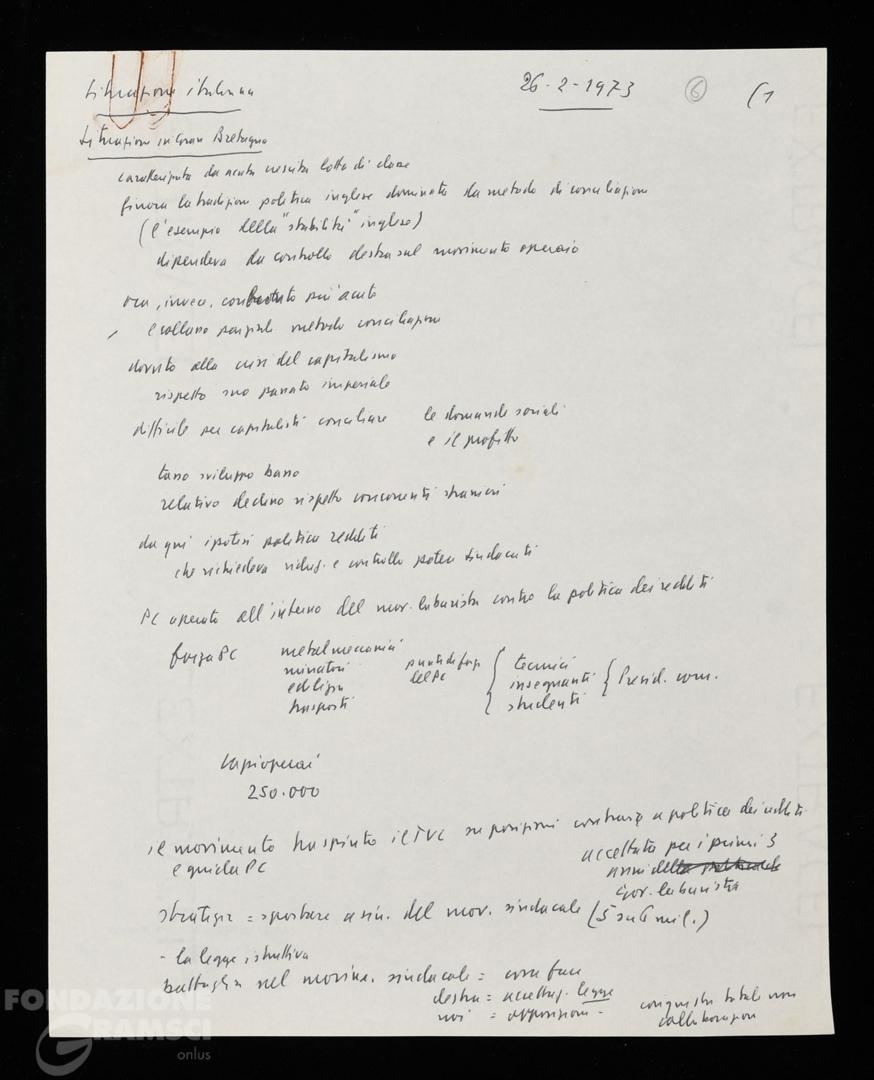 Situazione italiana 26-2-1973 6 (1
Situazione in Gran Bretagna
caratterizzata da acuta crescita lotta di classe
finora la tradizione politica inglese dominata da metodo di conciliazione
(l'esempio della "stabilità" inglese)
dipendeva da controllo destra sul movimento operaio
ora, invece, più acuto
e collasso metodo conciliazione
dovuto alla crisi del capitalismo
rispetto suo passato imperiale
difficile per capitalisti conciliare le domande sociali
e il profitto
tasso sviluppo basso
relativo declino rispetto concorrenti stranieri
da qui ipotesi politica redditi
che richiedeva riduz. e controllo potere sindacati
PC operato all'interno del mov. laburista contro la politica dei redditi
forza PC metalmeccanici
minatori
edilizia
trasporti
punti di forza
del PC
{ tecnici
insegnanti
studenti
{ Presid. com.
capi operai
250.000
il movimento ha spinto il TUC su posizioni contrarie a politica dei redditi
e guida PC
accettata per i primi 3
anni
gov. laburista
strategia = spostare a sin. del mov. sindacale (5 su 6 mil.)
- la legge
battaglia nel movim. sindacale = cosa fare
destra = accettaz. legge
noi = opposizione -
conquista totale non
collaborazione
FONDAZIONE
GRAMSCI
onlus